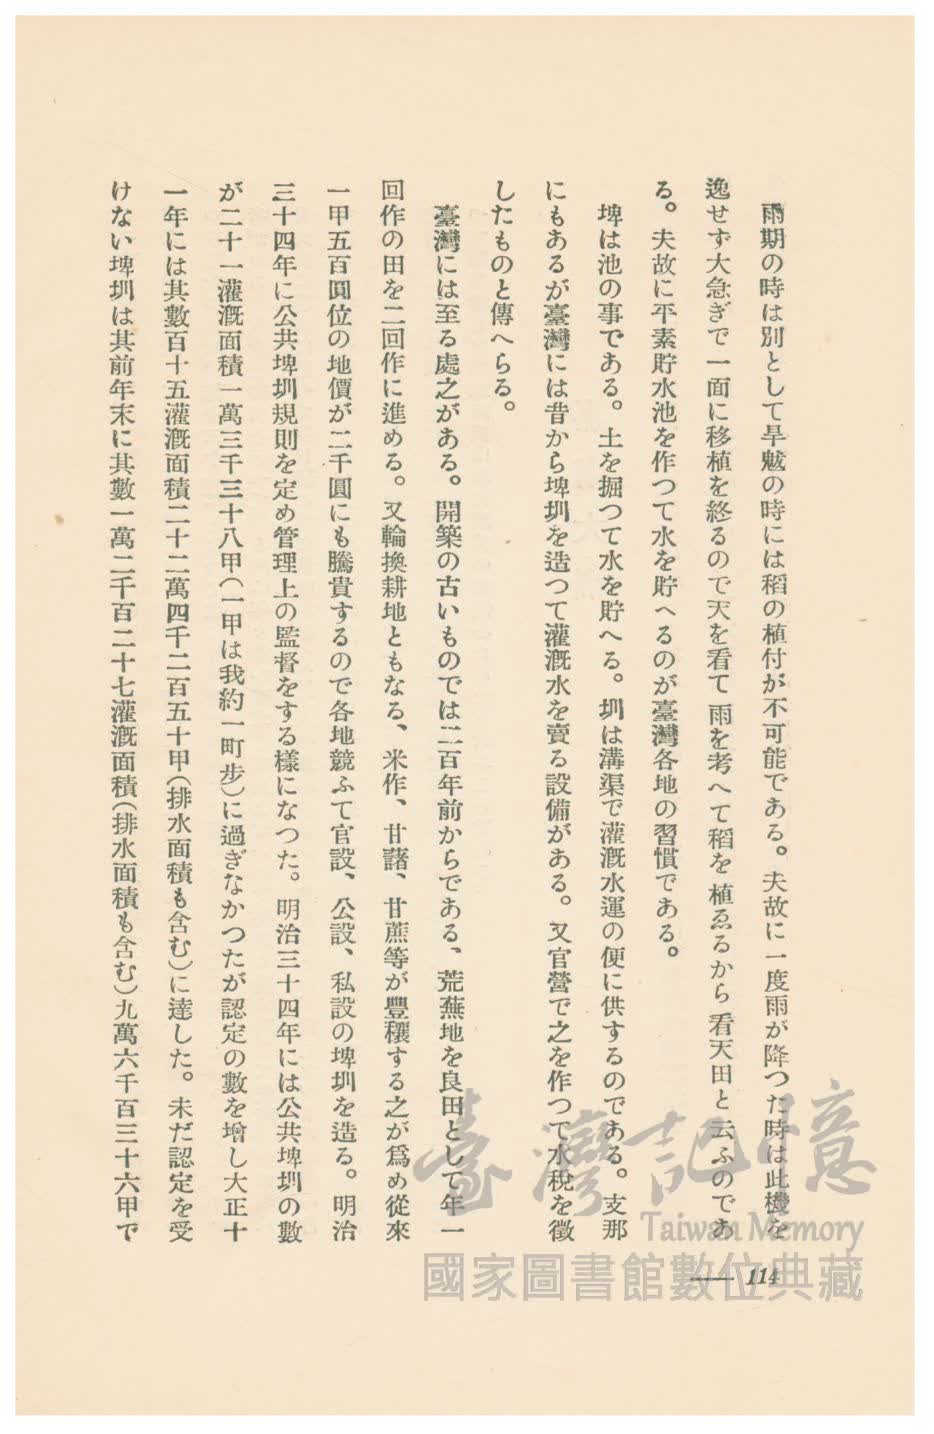 雨期の時は別として旱魃の時には稻の植付が不可能である。夫故に一度雨が降つた時は此機を
逸せず大急ぎで一面に移植を終るので天を看て雨を考へて稻を植ゑるから看天田と云ふのであ
る。夫故に平素貯水池を作つて水を貯へるのが臺灣各地の習慣である。
埤は池の事である。土を掘つて水を貯へる。圳は溝渠で灌漑水運の便に供するのである。支那
にもあるが臺灣には昔から埤圳を造つて灌漑水を賣る設備がある。又官營で之を作つて水稅を徵
したものと傳へらる。
臺灣には至る處之がある。開築の古いものでは二百年前からである、荒蕪地を良田として年一
回作の田を二回作に進める。又輪換耕地ともなる、米作、甘藷、甘蔗等が豐穰する之が爲め從來
一甲五百圓位の地價が二千圓にも騰貴するので各地競ふて官設、公設、私設の埤圳を造る。明治
三十四年に公共埤圳規則を定め管理上の監督をする樣になつた。明治三十四年には公共埤圳の數
が二十一灌漑面積一萬三千三十八甲(一甲は我約一町步)に過ぎなかつたが認定の數を增し大正十
一年には其數百十五灌漑面積二十二萬四千二百五十甲(排水面積も含む)に達した。未だ認定を受
けない埤圳は其前年末に其數一萬二千百二十七灌漑面積(排水面積も含む)九萬六千百三十六甲で
— 114
臺灣記憶
Taiwan Memory
國家圖書館數位典藏